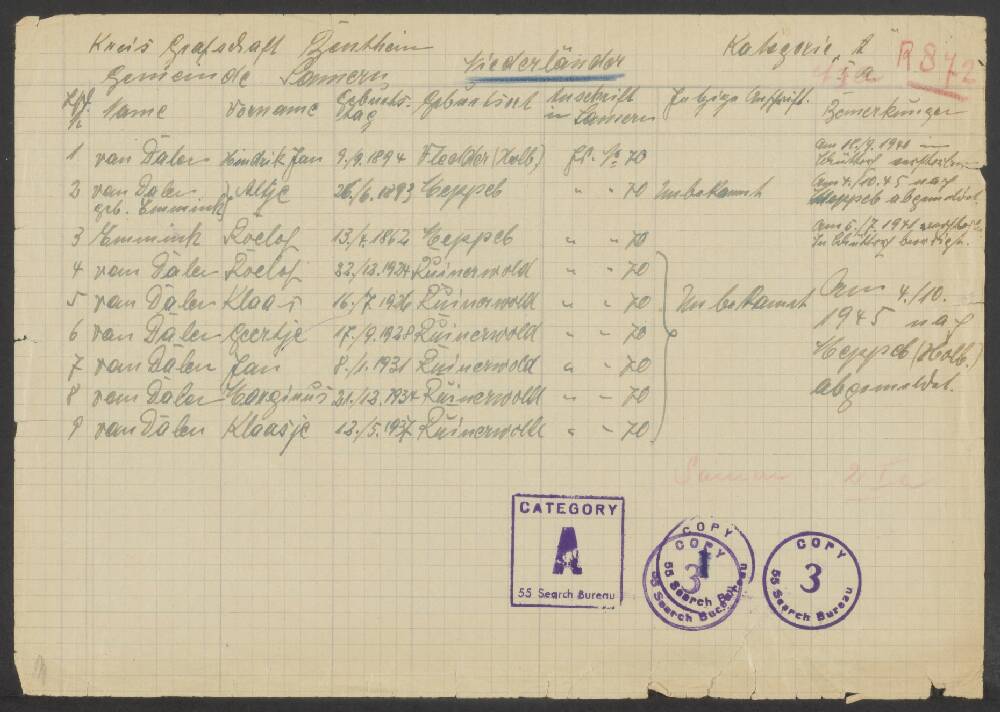 Kreis Grafschaft Bentheim Niederländer Kategorie "A"
Gemeinde Samern R 872
Lfd. Nr. Name Vorname Geburtstag Geburtsort Anschrift in Samern Jetzige Anschrift. Bemerkungen
1 van Dalen Hindrik Jan 9./9.1894 (Holb) Hs. Nr. 70 Am 1941 in Schüttorf verstorben
2 van Dalen geb. Emmink Altje 26./6.1893 Meppel " " 70 Unbekannt Am 4./10.45 nach Meppel abgemeldet
3 Emmink Roelof 13./7.1862 Meppel " " 70 Am 6./7 1941 in Schüttorf beerdigt.
4 van Dalen Roelof 1924 Ruinerwold " " 70
5 van Dalen Klaas 16./7.1926 Ruinerwold " " 70 Unbekannt Am 4./10.
6 van Dalen Geertje 17./9.1928 Ruinerwold " " 70 1945 nach
7 van Dalen Jan 8./1.1931 Ruinerwold " " 70 Meppel (Holb.)
8 van Dalen Marginus 21./12.1934 Ruinerwold " " 70 abgemeldet.
9 van Dalen Klaasje 12./5.1937 Ruinerwold " " 70
Samern
CATEGORY
A
55 Search Bureau
COPY
COPY
3
55 Search Bureau
55 Search Bureau
COPY
3
55 Search Bureau